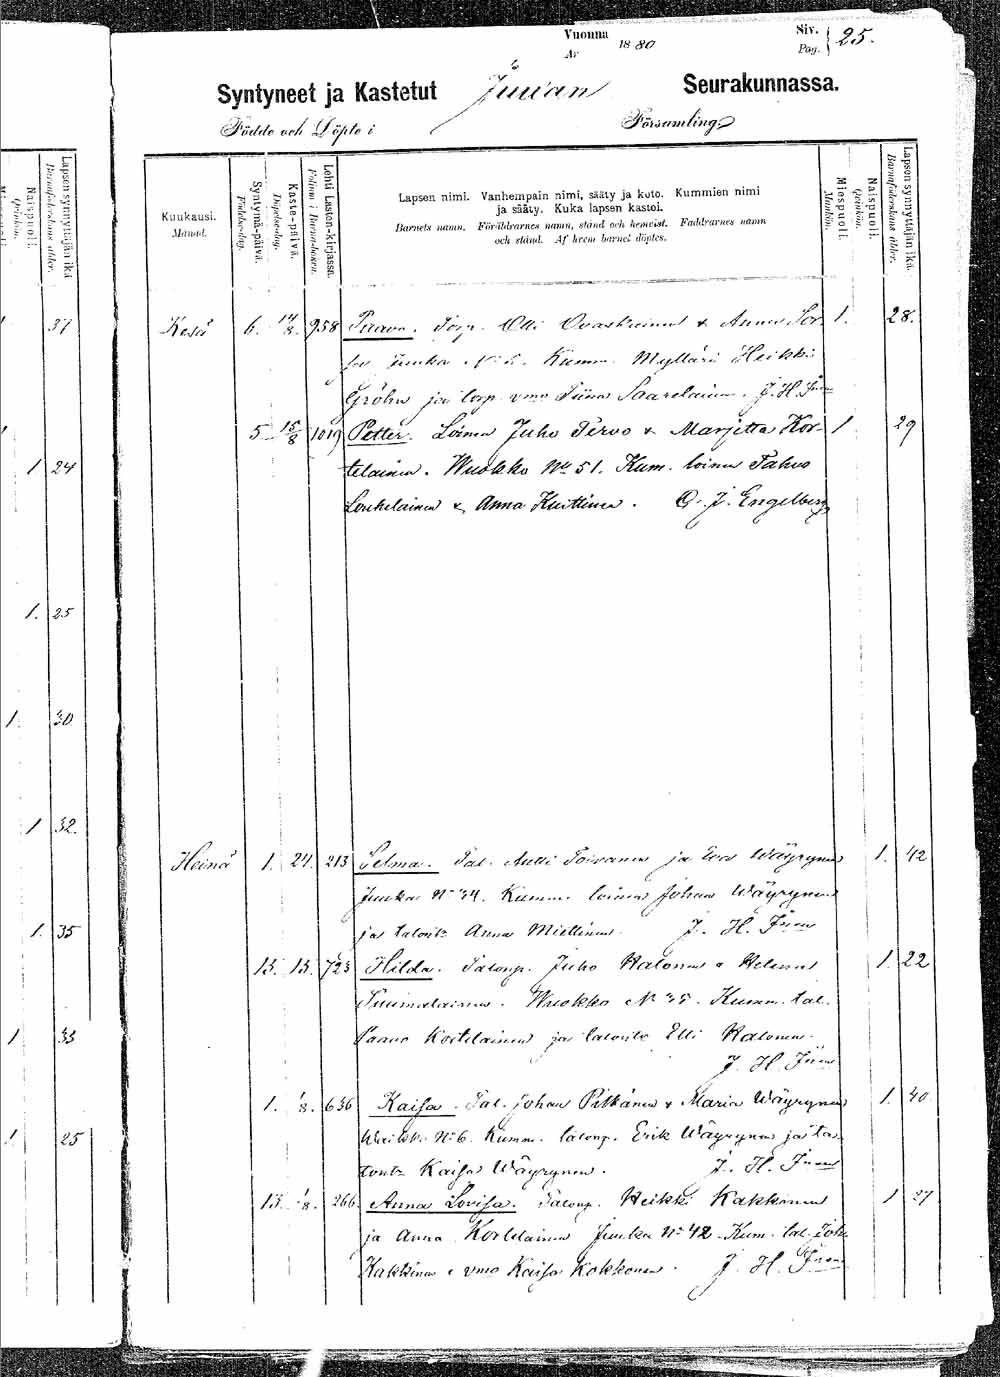 Vuonna 1880 Siv. 25.
År Pag.
Syntyneet ja Kastetut Juuan Seurakunnassa.
Födde och Döpte i Församling
Lapsen synnyttäjän ikä
Barnaföderskans ålder.
Naispuoli.
Qvinkön.
37
1 24
1. 25
1. 30
1 32.
1. 35
1 33
1. 25
Kuukausi.
Månad.
Syntymä-päivä.
Födelse-dag.
Kaste-päivä.
Döpelse-dag.
Lehti Lasten-kirjassa.
Folium i Barna-boken.
Lapsen nimi. Vanhempain nimi, sääty ja koto. Kummien nimi
ja sääty. Kuka lapsen kastoi.
Barnets namn. Föräldrarnes namn, stånd och hemvist. Faddrarnes namn
och stånd. Af hvem barnet döptes.
Miespuoli.
Mankön.
Naispuoli.
Qvinkön.
Lapsen synnyttäjän ikä.
Barnaföderskans ålder.
Kesä 6. 14/8. 958 Paavo. Torp. Olli Ovaskainen & Anna 1. 28.
Juuka Kumm. Mylläri Heikki
Gröhn ja torp. vmo Tiina Saarelainen. J. H.
5 15/8 1019 Petter. Loinen Juho Tervo & Marjetta Kor- 1 29
telainen. Wuokko No 51. Kum. loinen Tahvo
Louhelainen & Anna Kuittinen. O. J. Engelberg
Heinä 1. 24. 213 Selma. Tal. Antti Toivanen ja Eva Wäyrynen 1. 42
Juuka No 34. Kumm. loinen Johan Wäyrynen
ja talont. Anna Miettinen. J. H.
15. 15. 723 Hilda. Talonp. Juho Halonen & Helena 1. 22
Puumalainen. Wuokko No 35. Kumm. tal.
Paavo Kortelainen ja talont. Elli Halonen.
J. H.
1. 1/8. 636 Kaisa. Tal. Johan Pitkänen & Maria Wäyrynen 1. 40
No 6. Kumm. talonp. Erik Wäyrynen ja ta-
lont. Kaisa Wäyrynen. J. H.
13. 1/8. 266 Anna Lovisa. Talonp. Heikki Kakkinen 1 27
ja Anna Kortelainen Juuka No 42. Kum. tal. Joh.
Kakkinen & vmo Kaisa Kokkonen. J. H.